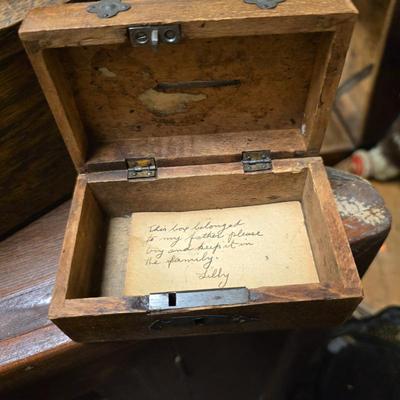 This box belonged
to my father please
try and keep it in
the family.
Lilly